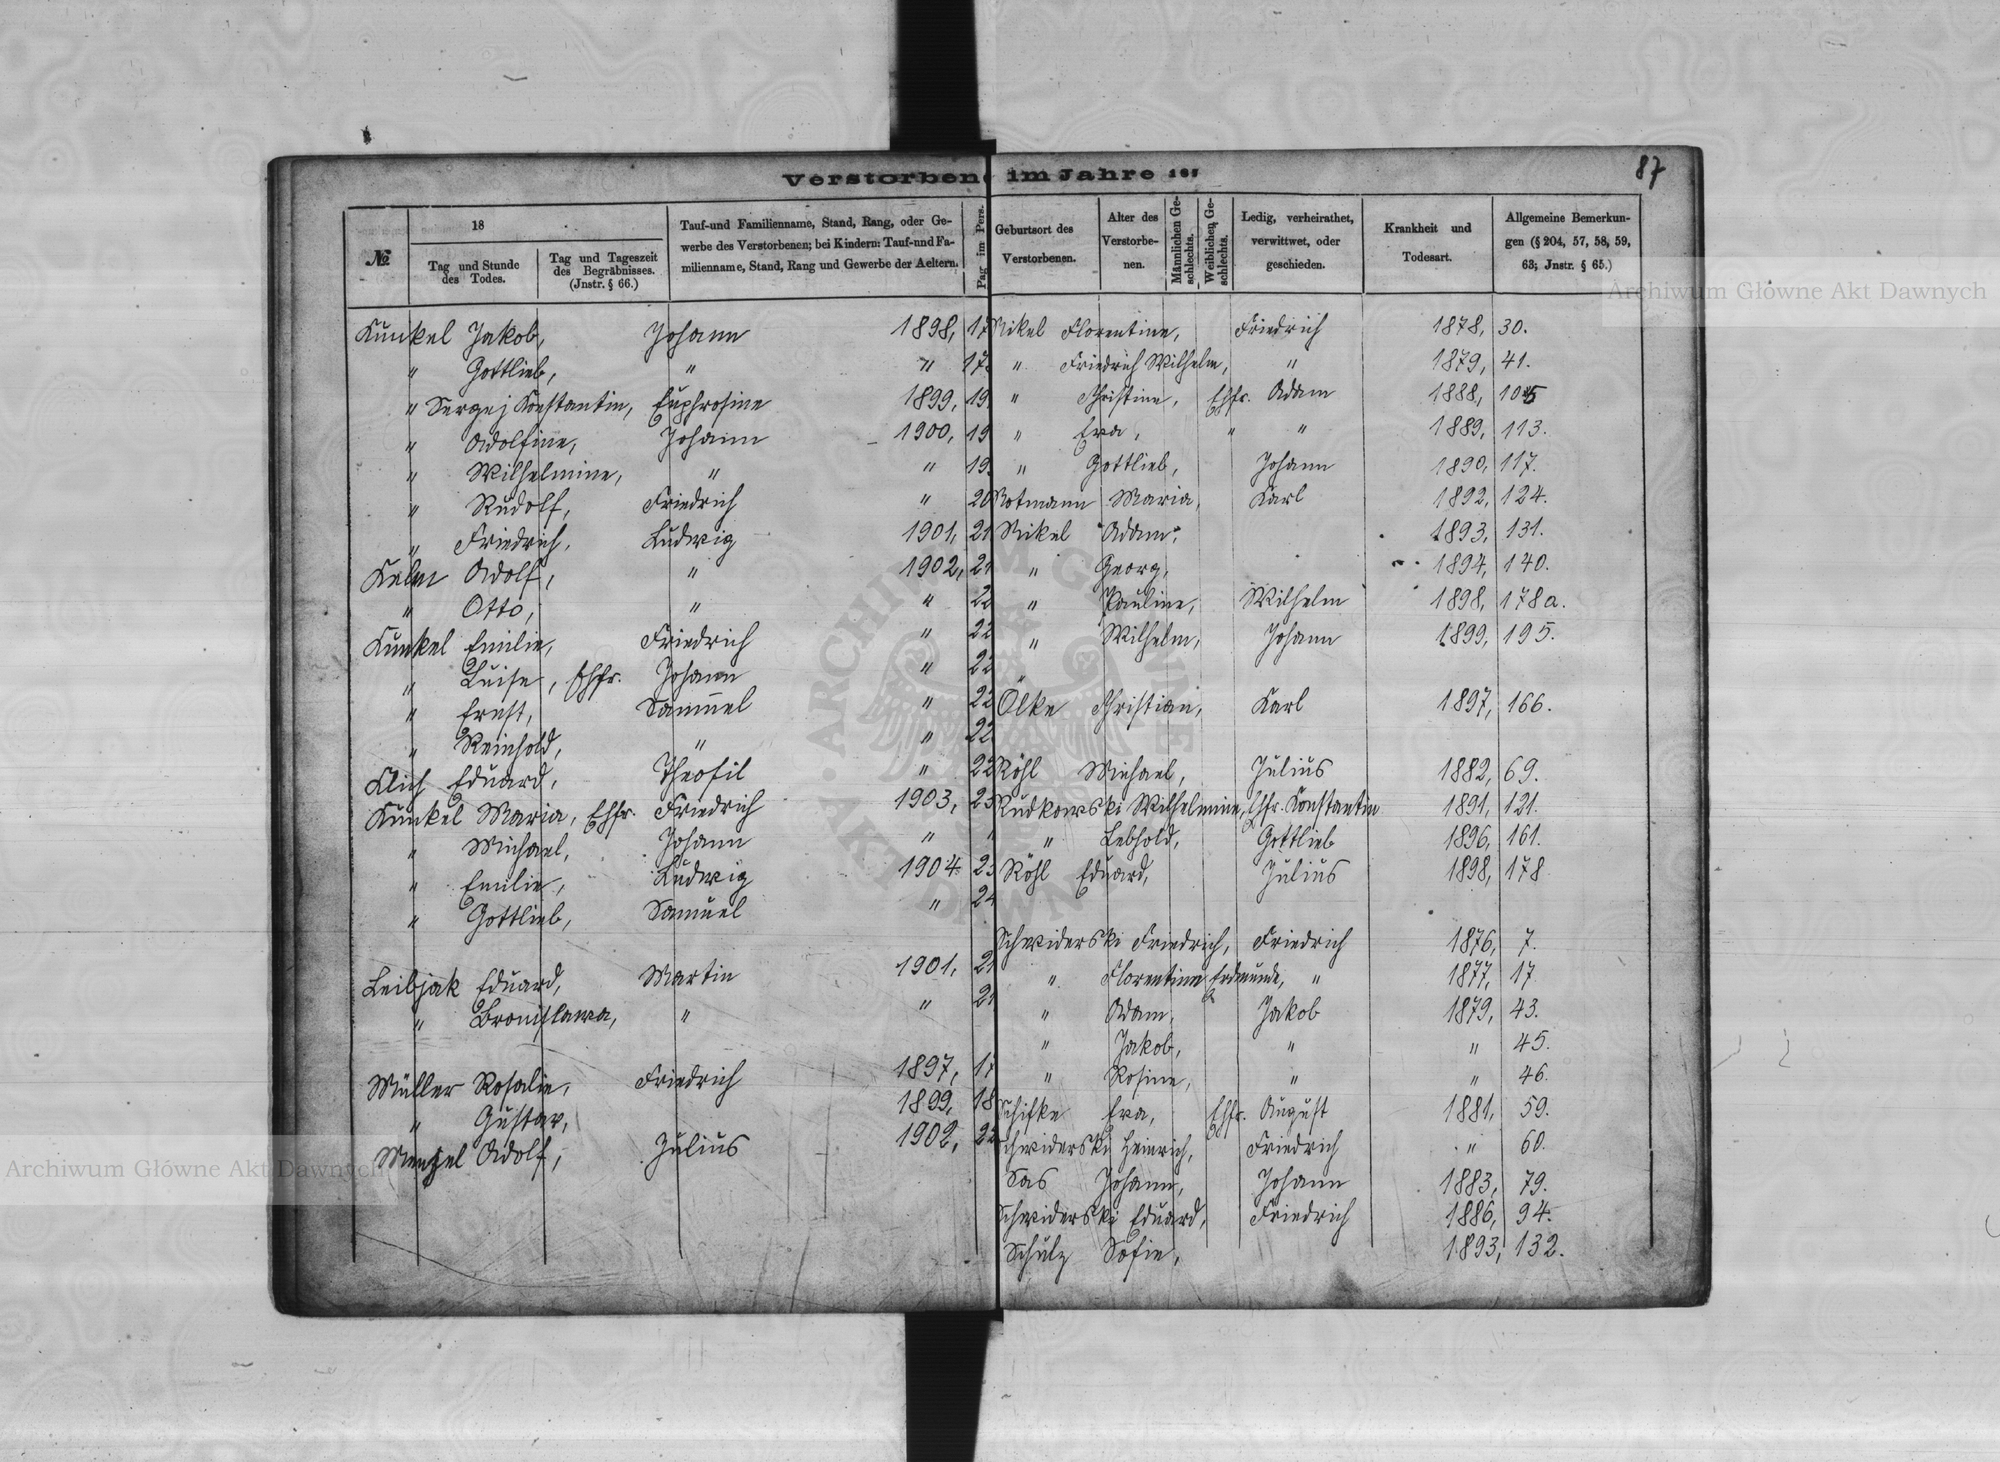 87
Verstorbene im Jahre 187
№
18
Tag und Stunde
des Todes.
Tag und Tageszeit
des Begräbnisses.
(Jnstr. § 66.)
Tauf-und Familienname, Stand, Rang, oder Ge-
werbe des Verstorbenen; bei Kindern: Tauf-und Fa-
milienname, Stand, Rang und Gewerbe der Aeltern.
Pag im Pers.
Geburtsort des
Verstorbenen.
Alter des
Verstorbe-
nen.
Männlichen Ge-
schlechts.
Weiblichen Ge-
schlechts.
Ledig, verheirathet,
verwittwet, oder
geschieden.
Krankheit und
Todesart.
Allgemeine Bemerkun-
gen (§ 204, 57, 58, 59,
63; Jnstr. § 65.)
Kunkel Jakob, Johann 1898, 17
" Gottlieb, " " 17
" Sergej Konstantin, Euphrosine 1899, 19
" Adolfine, Johann 1900, 19
" Wilhelmine, " " 19
" Rudolf, Friedrich " 20
" Friedrich, Ludwig 1901, 21
Kelm Adolf, " 1902, 21
" Otto, " " 22
Kunkel Emilie, Friedrich " 22
" Luise, Ehfr. Johann " 22
" Ernst, Samuel " 22
" Reinhold, " " 22
Eduard, Theofil " 22
Kunkel Maria, Ehfr. Friedrich 1903, 23
" Michael, Johann " "
" Emilie, Ludwig 1904 23
" Gottlieb, Samuel " 24
Leibjak Eduard, Martin 1901, 21
" Bronisława, " " 21
Müller Rosalie, Friedrich 1897, 17
" Gustav, 1899, 18
Menzel Adolf, Julius 1902, 22
Nikel Florentine, Friedrich 1878, 30.
" Friedrich Wilhelm, " 1879, 41.
" Christine, Ehfr. Adam 1888, 105
" Eva, " " 1889, 113.
" Gottlieb, Johann 1890, 117.
Notmann Maria, Karl 1892, 124.
Nikel Adam, 1893, 131.
" Georg, 1894, 140.
" Pauline, Wilhelm 1898, 178a.
" Wilhelm, Johann 1899, 195.
"
Ölke Christian, Karl 1897, 166.
Röhl Michael, Julius 1882, 69.
Rudkowski Wilhelmine, Ehfr. Konstantin 1891, 121.
" Lebhold, Gottlieb 1896, 161.
Röhl Eduard, Julius 1898, 178
Schwiderski Friedrich, Friedrich 1876, 7.
" Florentine Erdmunde, " 1877, 17
" Adam, Jakob 1879, 43.
" Jakob, " " 45.
" Rosine, " " 46.
Schifke Eva, Ehfr. August 1881, 59.
Schwiderski Heinrich, Friedrich " 60.
Sas Johann, Johann 1883, 79.
Schwiderski Eduard, Friedrich 1886, 94.
Schulz Sofie, 1893, 132.
Archiwum Główne Akt Dawnych
Archiwum Główne Akt Dawnych